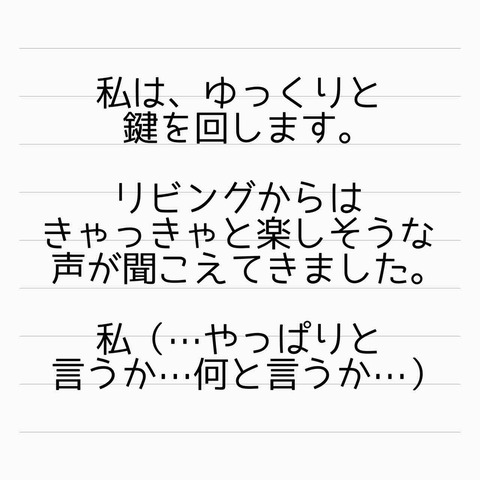 私は、ゆっくりと
鍵を回します。
リビングからは
きゃっきゃと楽しそうな
声が聞こえてきました。
私（…やっぱりと
言うか…何と言うか…）